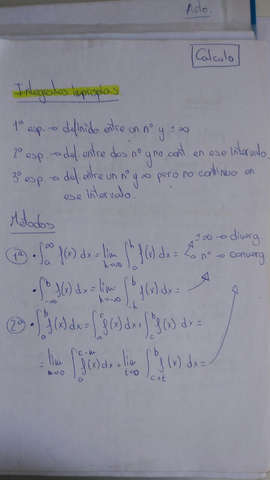 Cálculo
Integrales Impropias
1ª esp. → definido entre un nº y ±∞
2ª esp → def. entre dos nº y no cont. en ese intervalo.
3ª esp → def. entre un nº y ∞ pero no continuo en
ese intervalo.
Métodos
1ª) · ∫ₐ^∞ f(x) dx = lim h→∞ ∫ₐ^h f(x) dx = ±∞ → diverg.
nº → converg
· ∫₋∞^b f(x) dx = lim h→∞ ∫₋h^b f(x) dx =
2ª) · ∫ₐ^b f(x) dx = ∫ₐ^c f(x) dx + ∫c^b f(x) dx =
= lim m→0 ∫ₐ^c-m f(x) dx + lim t→0 ∫c+t^b f(x) dx =